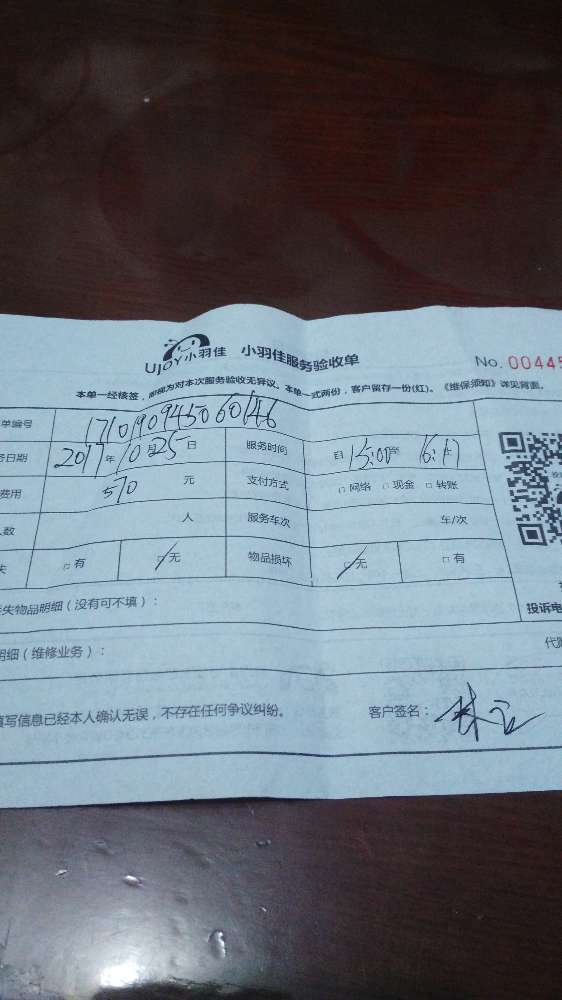 UJOY小羽佳 小羽佳服务验收单
No. 00445
本单一经核签，即视为对本次服务验收无异议。本单一式两份，客户留存一份(红)。《维保须知》详见背面。
单编号 1710190945060146
务日期 2017年10月25日 服务时间 自15:00至 16:17
费用 570 元 支付方式 □网络 □现金 □转账
人数 人 服务车次 车/次
失 □有 □无 物品损坏 □无 □有
丢失物品明细（没有可不填）：
投诉电
明细（维修业务）：
代
填写信息已经本人确认无误，不存在任何争议纠纷。 客户签名：